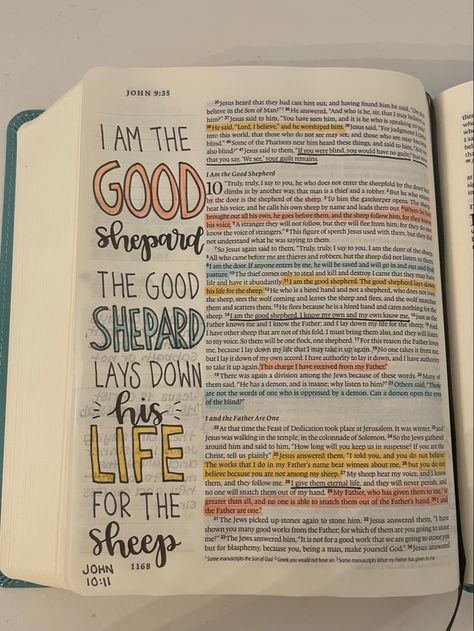 JOHN 9:35
I AM THE
GOOD
shepard
THE GOOD
SHEPARD
LAYS DOWN
his
LIFE
FOR THE
sheep
JOHN
10:11
1168
35 Jesus heard that they had cast him out, and having found him he said, "Do you
believe in the Son of Man?"
36 He answered, "And who is he, sir, that I may believe
him?" 37 Jesus said to him, "You have seen him, and it is he who is speaking to you."
38 He said, "Lord, I believe," and he worshiped him. 39 Jesus said, "For judgment I
into this world, that those who do not see may see, and those who see may become
blind." 40 Some of the Pharisees near him heard these things, and said to him,
also blind?" 41 Jesus said to them, "If you were blind, you would have no guilty; but now
that you say, 'We see,' your guilt remains.
I Am the Good Shepherd
10 "Truly, truly, I say to you, he who does not enter the sheepfold by the door but
climbs in another way, that man is a thief and a robber. 2 But he who enters
by the door is the shepherd of the sheep. 3 To him the gatekeeper opens. The sheep
hear his voice, and he calls his own sheep by name and leads them out. 4 When he has
brought out all his own, he goes before them, and the sheep follow him, for they know
his voice. 5 A stranger they will not follow, but they will flee from him, for they do not
know the voice of strangers." 6 This figure of speech Jesus used with them, but they did
not understand what he was saying to them.
7 So Jesus again said to them, "Truly, truly, I say to you, I am the door of the sheep.
8 All who came before me are thieves and robbers, but the sheep did not listen to them.
9 I am the door. If anyone enters by me, he will be saved and will go in and out and find
pasture. 10 The thief comes only to steal and kill and destroy. I came that they may have
life and have it abundantly. 11 I am the good shepherd. The good shepherd lays down
his life for the sheep. 12 He who is a hired hand and not a shepherd, who does not own
the sheep, sees the wolf coming and leaves the sheep and flees, and the wolf snatches
them and scatters them. 13 He flees because he is a hired hand and cares nothing for the
sheep. 14 I am the good shepherd. I know my own and my own know me, 15 just as the
Father knows me and I know the Father; and I lay down my life for the sheep. 16 And
I have other sheep that are not of this fold. I must bring them also, and they will listen
to my voice. So there will be one flock, one shepherd. 17 For this reason the Father loves
me, because I lay down my life that I may take it up again. 18 No one takes it from me,
but I lay it down of my own accord. I have authority to lay it down, and I have authority
to take it up again. This charge I have received from my Father."
19 There was again a division among the Jews because of these words. 20 Many of
them said, "He has a demon, and is insane; why listen to him?" 21 Others said, "These
are not the words of one who is oppressed by a demon. Can a demon open the eyes
of the blind?"
I and the Father Are One
22 At that time the Feast of Dedication took place at Jerusalem. It was winter, 23 and
Jesus was walking in the temple, in the colonnade of Solomon. 24 So the Jews gathered
around him and said to him, "How long will you keep us in suspense? If you are the
Christ, tell us plainly." 25 Jesus answered them, "I told you, and you do not believe.
The works that I do in my Father's name bear witness about me, 26 but you do not
believe because you are not among my sheep. 27 My sheep hear my voice, and I know
them, and they follow me. 28 I give them eternal life, and they will never perish, and
no one will snatch them out of my hand. 29 My Father, who has given them to me, is
greater than all, and no one is able to snatch them out of the Father's hand. 30 I and
the Father are one."
31 The Jews picked up stones again to stone him. 32 Jesus answered them, "I have
shown you many good works from the Father; for which of them are you going to stone
me?" 33 The Jews answered him, "It is not for a good work that we are going to stone you
but for blasphemy, because you, being a man, make yourself God." 34 Jesus answered
1 Some manuscripts the Son of God 2 Greek you would not have sin 3 Some manuscripts What my Father has given to me